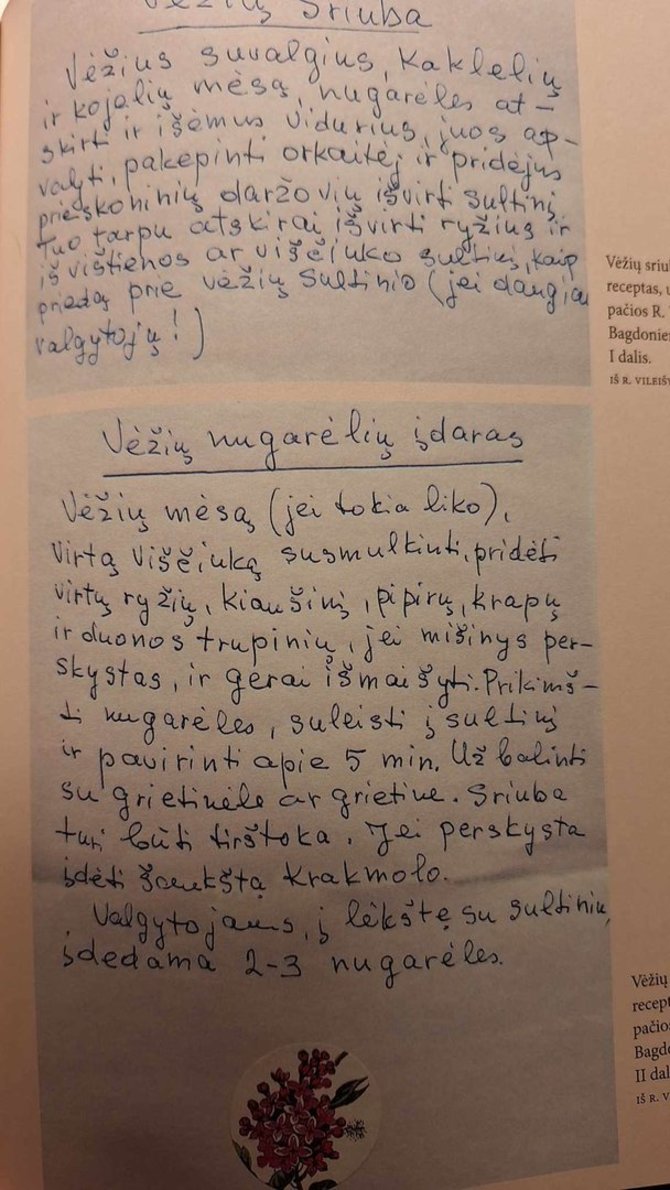 Vėžių Sriuba
Vėžius suvalgius, kaklelių
ir kojelių mėsą, nugarėles at-
skirti ir išėmus vidurius, juos ap-
valyti, pakepinti orkaitėj ir pridėjus
prieskoninių daržovių išvirti sultinį.
Tuo tarpu atskirai išvirti ryžius ir
iš vištienos ar viščiuko sultinį, kaip
priedą prie vėžių sultinio (jei daugiau
valgytojų!)
Vėžių sriu
receptas, u
pačios R.
Bagdonie
I dalis.
IŠ R. VILEIŠ
Vėžių nugarėlių įdaras
Vėžių mėsą (jei tokia liko),
virtą viščiuką susmulkinti, pridėti
virtų ryžių, kiaušinį, pipirų, krapų
ir duonos trupinių, jei mišinys per-
skystas, ir gerai išmaišyti. Prikimš-
ti nugarėles, suleisti į sultinį
ir pavirinti apie 5 min. Užbalinti
su grietinėle ar grietine. Sriuba
turi būti tirštoka. Jei perskysta
įdėti šaukštą krakmolo.
Valgytojams, į lėkštę su sultiniu,
įdedama 2-3 nugarėles.
Vėžių
recept
pačios
Bagdo
II dal
IŠ R. V